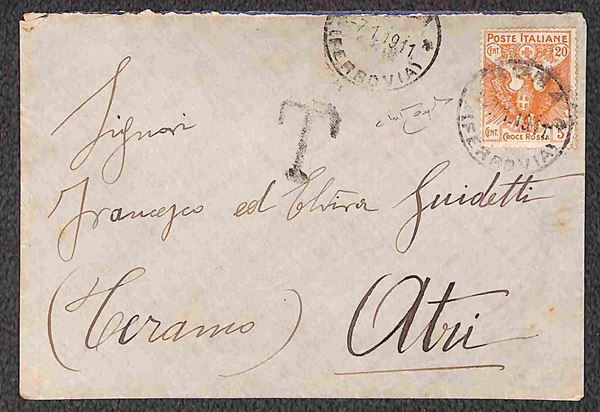 -7.1.1911
(FERROVIA)
POSTE ITALIANE
CENT. 20
CENT. 5
CROCE ROSSA
(FERROVIA)
T
Signori
Francesco ed Elvira Guidetti
(Teramo) Atri